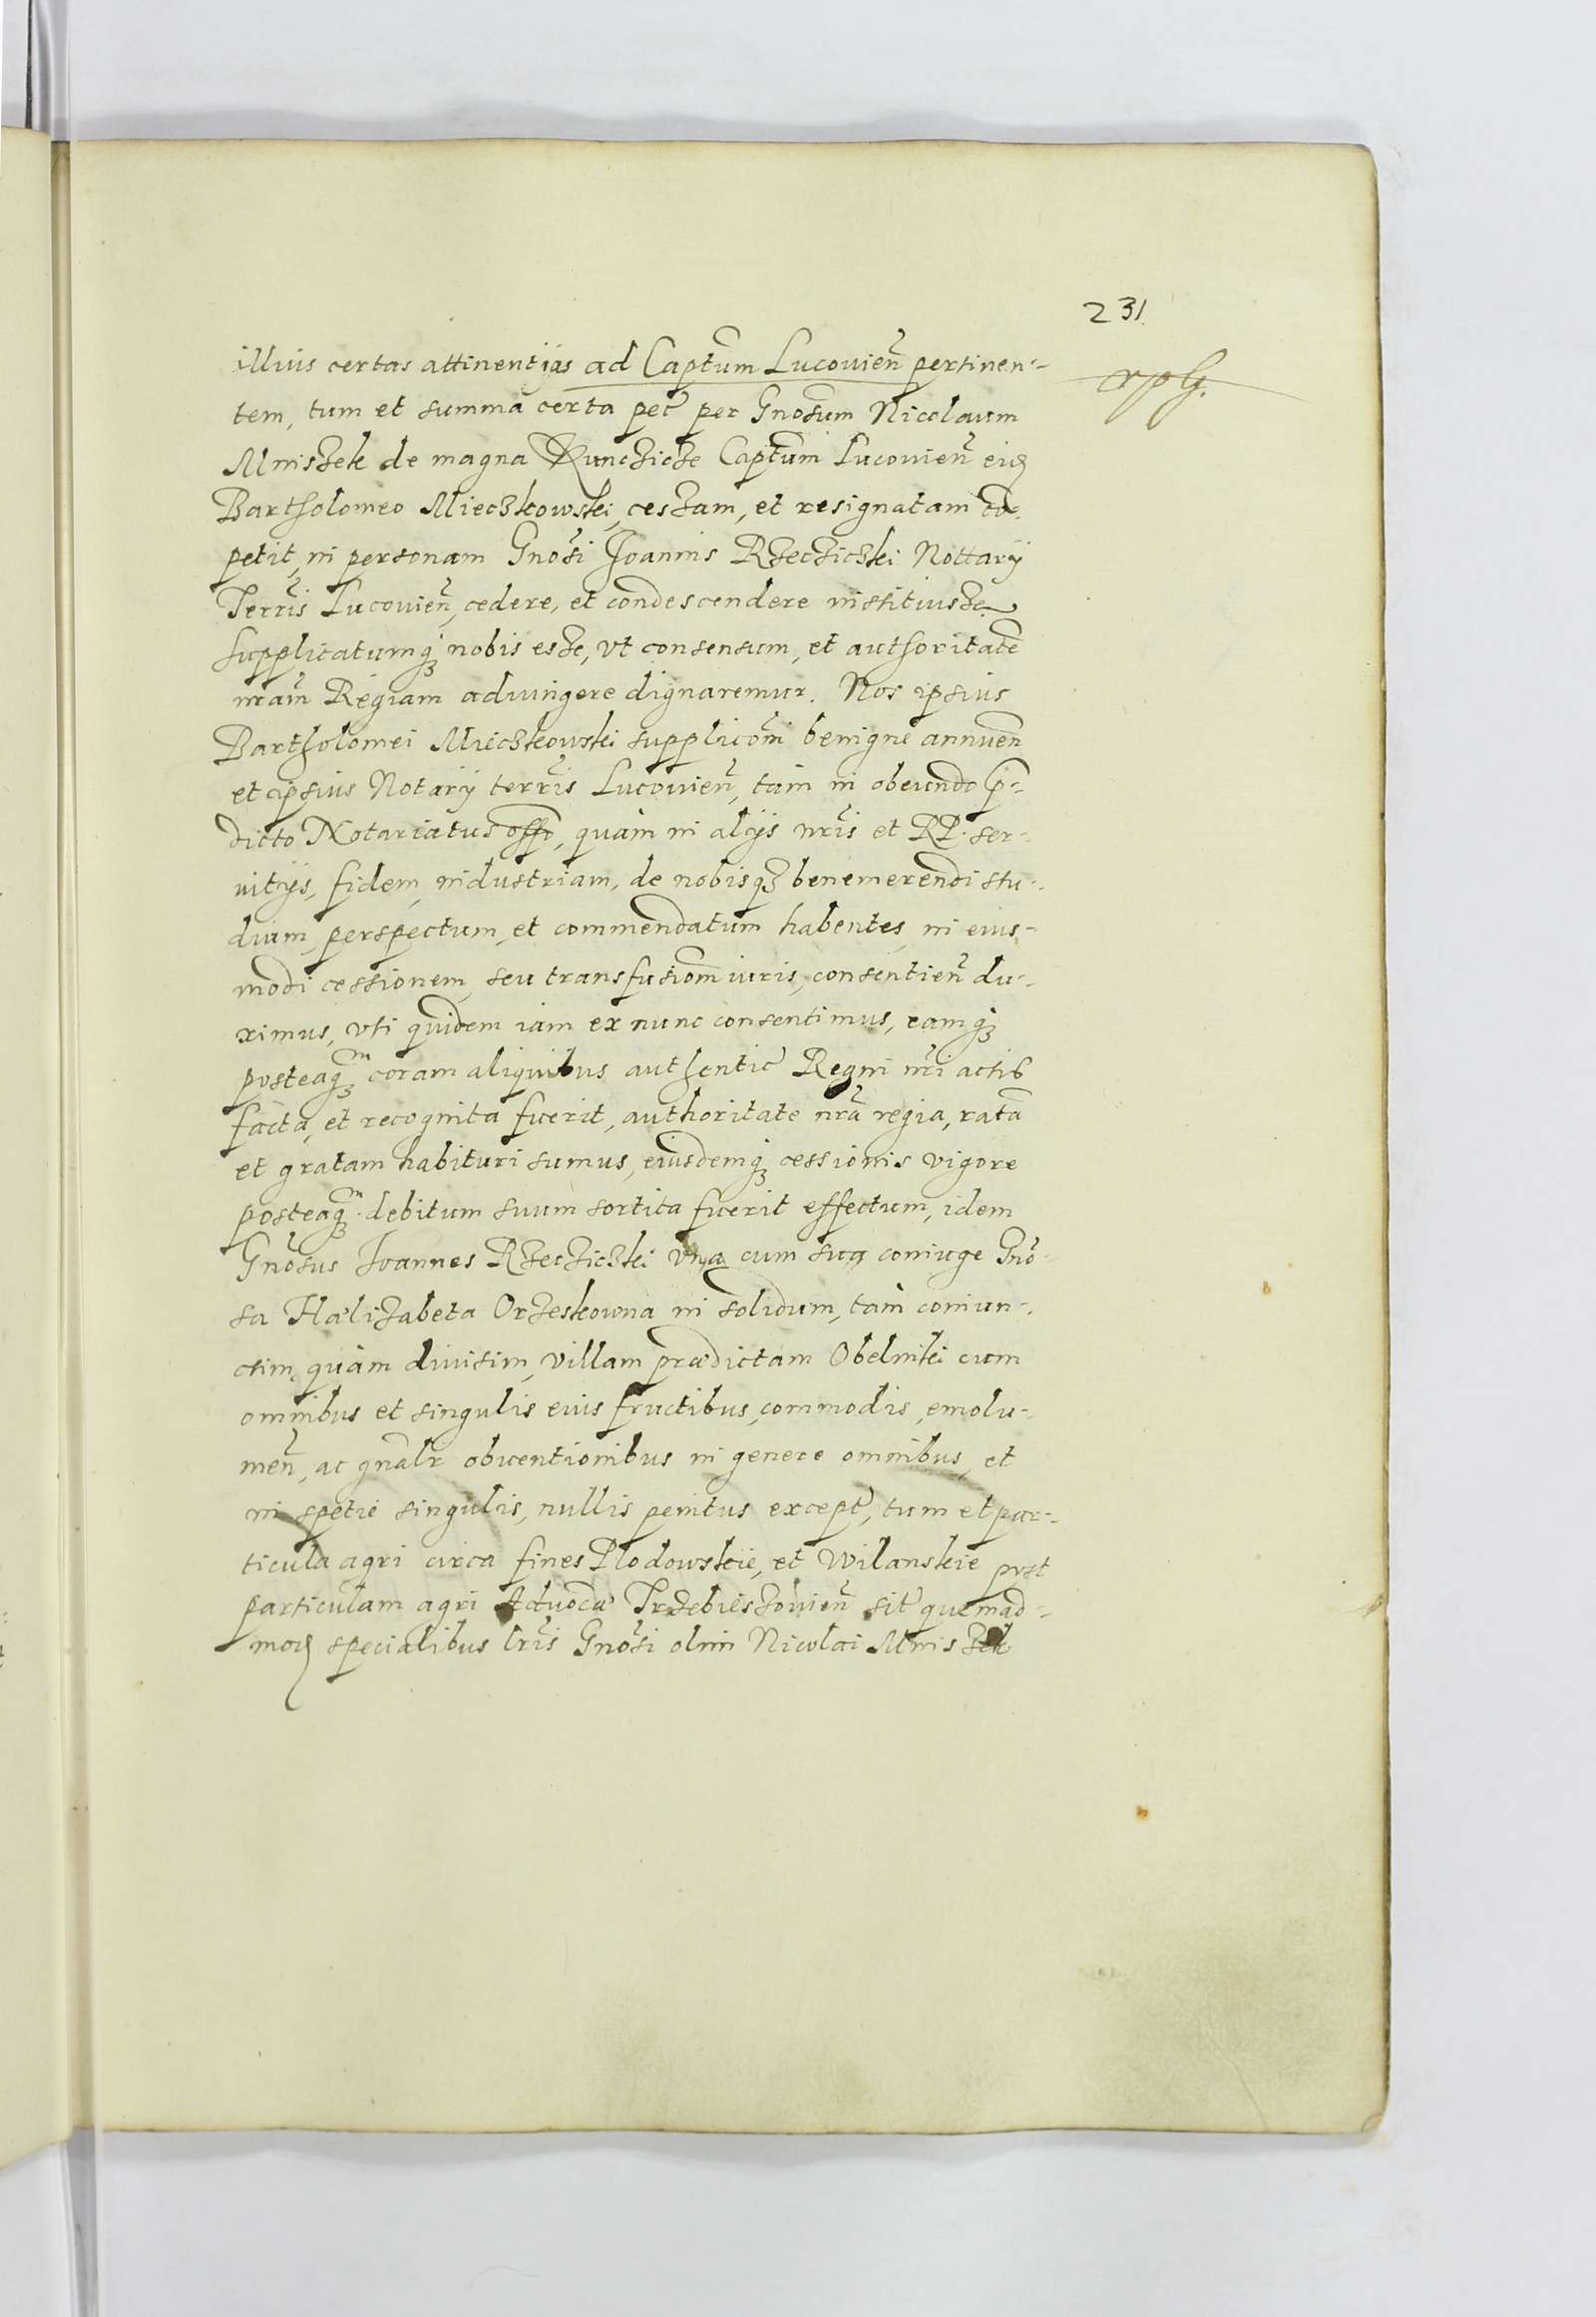 231.
illius certas attinentijas ad Captum Lucovień pertinen-
tem, tum et summa certa pec̃ per Gnosum Nicolaum
Mniszek de magna Kunczicze Captum Lucovień eid
Bartholomeo Mieczkowski, cessam, et resignatam co̅-
petit, in personam Gnosi Joannis Rzecziczki Nottarij
Terris Lucovień, cedere, et condescendere instituisse
supplicatumq; nobis esse, vt consensum, et authoritate̅
nram̅ Regiam adiungere dignaremur. Nos ipsius
Bartholomei Mieczkowski supplicom̅i benigne annuen̅
et ipsius Notarij terris Lucovień, tam in obeundo p̅-
dicto Notariatus offo, quàm in alijs nris et RP. ser-
vitijs, fidem, industriam, de nobisq; benemerendi stu-
dium perspectum, et commendatum habentes, in eius-
modi cessionem, seu transfusiom̅ iuris, consentień du-
ximus, vti quidem iam ex nunc consentimus, eamq;
posteaq;m coram aliquibus authentic̃ Regni nri actis
facta, et recognita fuerit, authoritate nra̅ regia, rata̅
et gratam habituri sumus, eiusdemq; cessionis vigore
posteaq;m debitum suum sortita fuerit effectum, idem
Gnosus Joannes Rzecziczki vna cum sua coniuge Gno-
sa Hælizabeta Orzeskowna in solidum, tàm coniun-
ctim, quàm diuisim, villam prædictam Obelniki cum
omnibus et singulis eius fructibus, commodis, emolu-
meń, ac gnalr obuentionibus in genere omnibus, et
in spetie singulis, nullis penitus except̃, tum et par-
ticula agri circa fines Plodowskie, et Wilanskie post
particulam agri Aduocã Trzebieszowień sit̃ quemad-
mod specialibus lris Gnosi olim Nicolai Mniszek